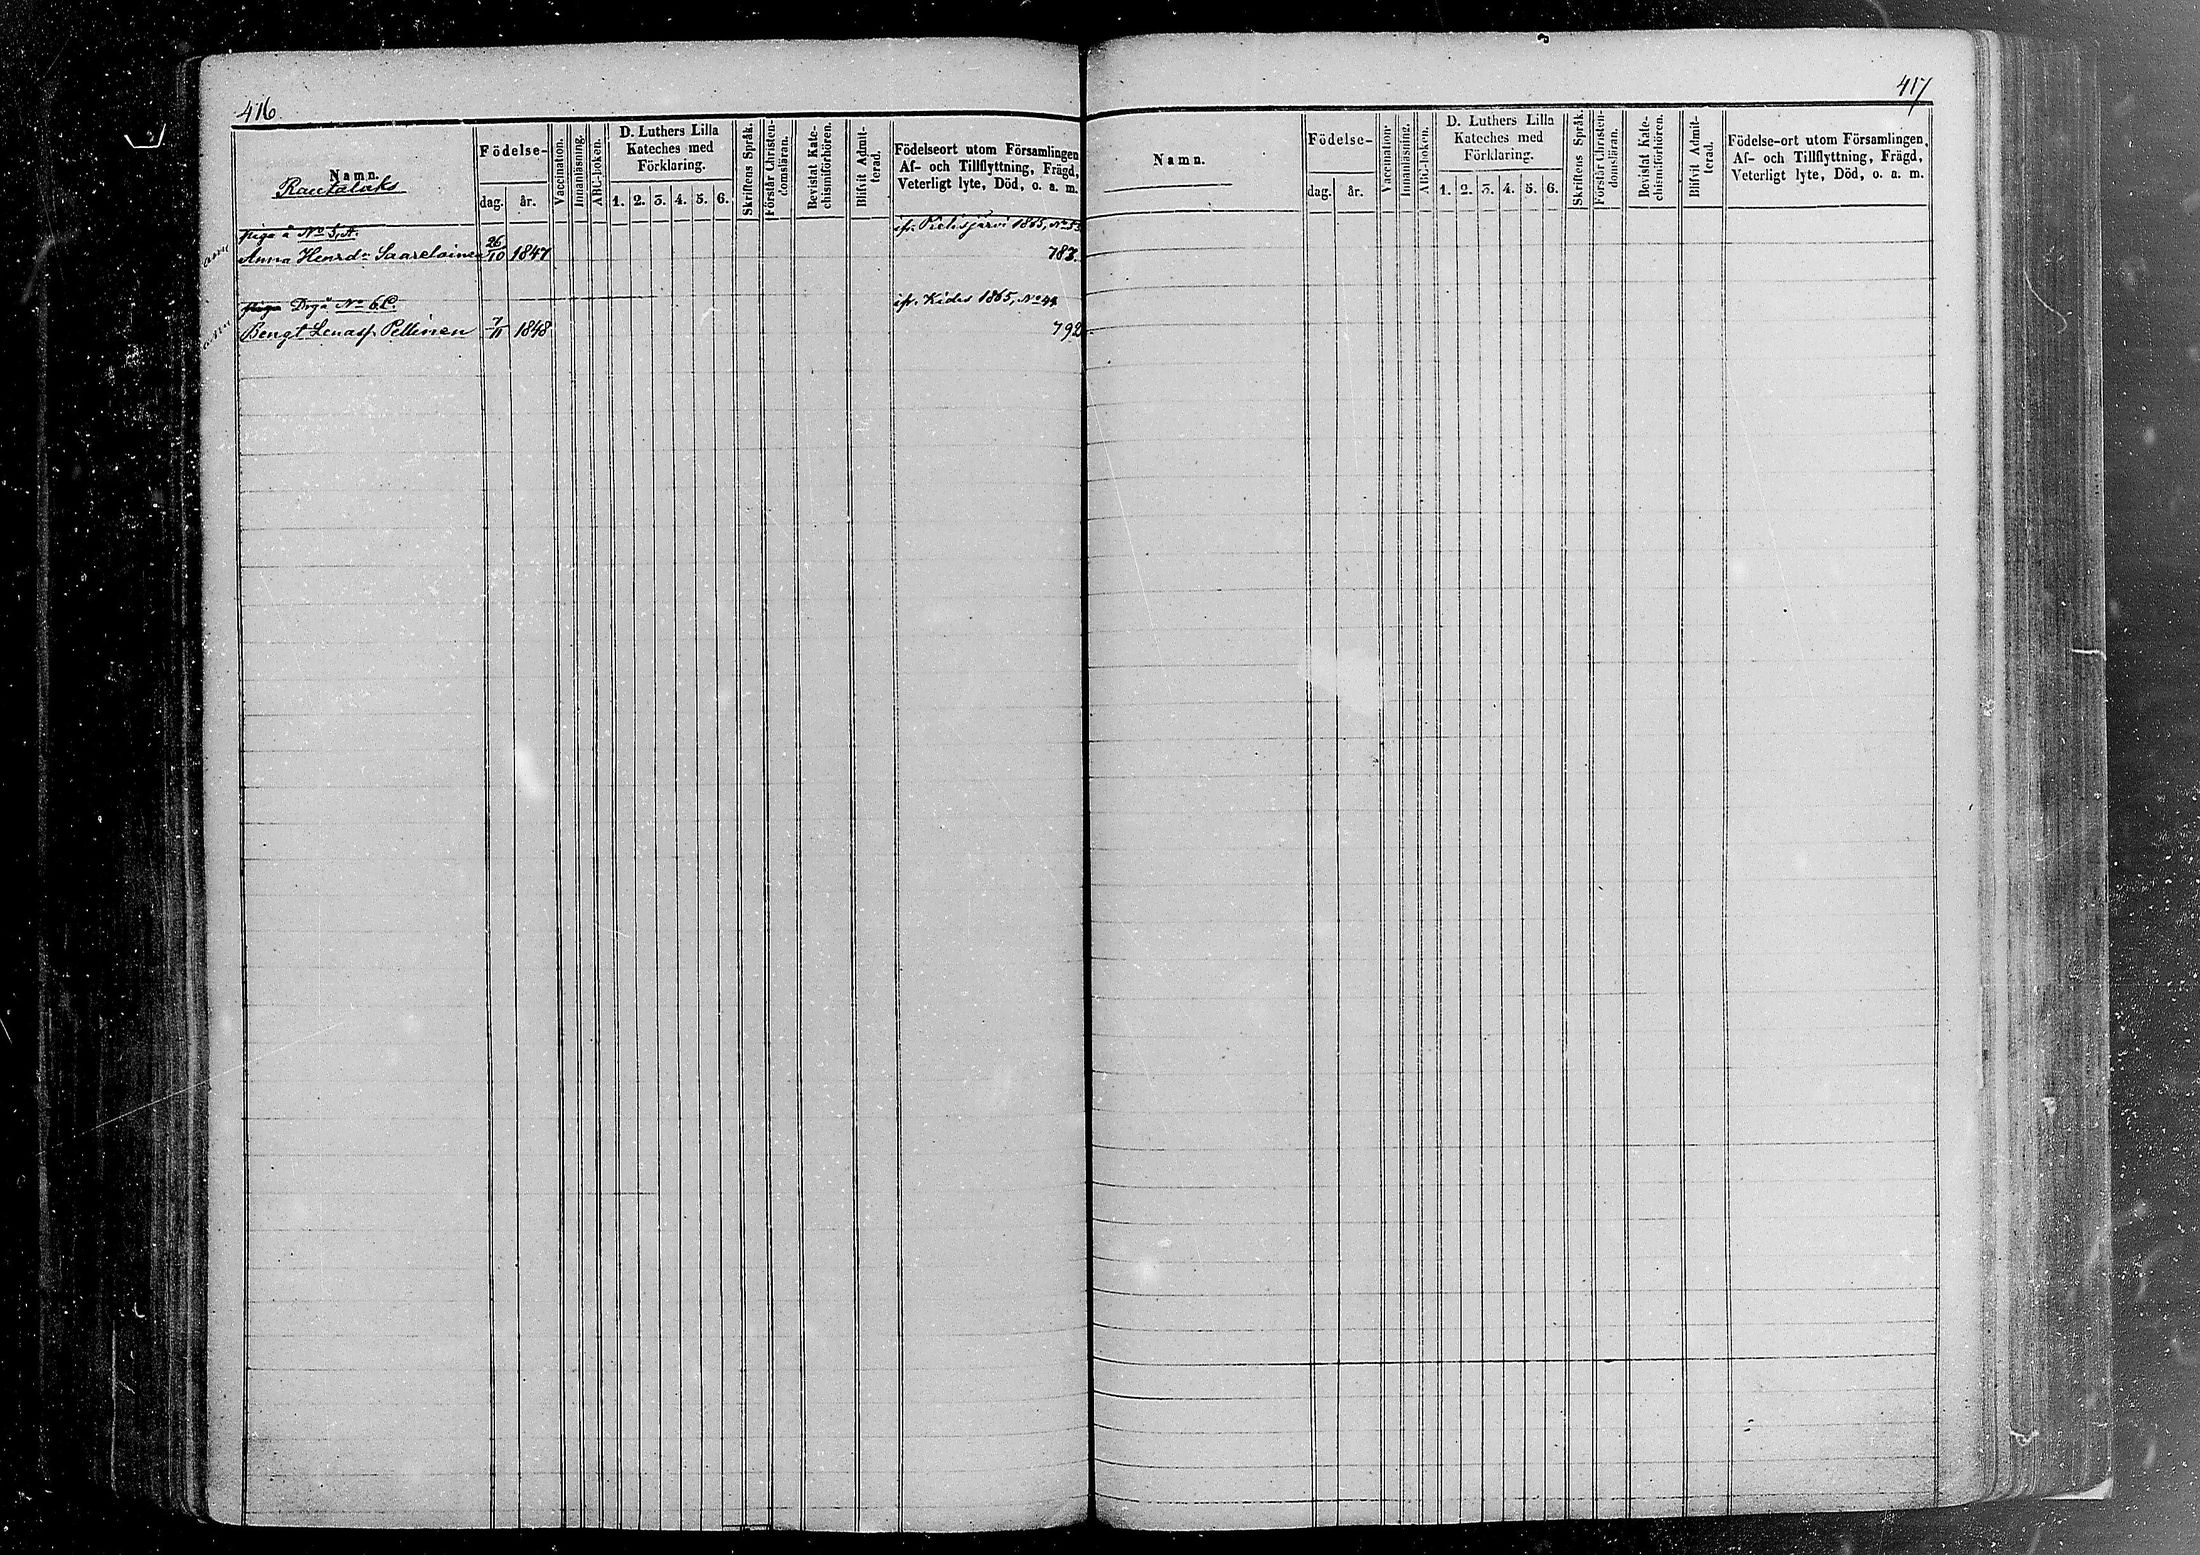 416
Namn.
Rautalaks
Födelse-
dag. år.
Vaccination.
Innanläsning.
ABC-boken.
D. Luthers Lilla
Kateches med
Förklaring.
1. 2. 3. 4. 5. 6.
Skriftens Språk.
Förstår Christen-
domsläran.
Bevistat Kate-
chismiförhören.
Blifvit Admit-
terad.
Födelseort utom Församlingen
Af- och Tillflyttning, Frägd,
Veterligt lyte, Död, o. a. m.
piga å No 5, A. ifr. Pielisjärvi 1865, No 53
Anna Henrdr Saarelainen 26/10 1847 783.
piga Drg å No 6 C. ifr. Kides 1865, No 44
Bengt Lenasf. Pellinen 7/11 1848 792
417
Namn.
Födelse-
dag. år.
Vaccination.
Innanläsning.
ABC-boken.
D. Luthers Lilla
Kateches med
Förklaring.
1. 2. 3. 4. 5. 6.
Skriftens Språk.
Förstår Christen-
domsläran.
Bevistat Kate-
chismiförhören.
Blifvit Admit-
terad.
Födelse-ort utom Församlingen,
Af- och Tillflyttning, Frägd,
Veterligt lyte, Död, o. a. m.